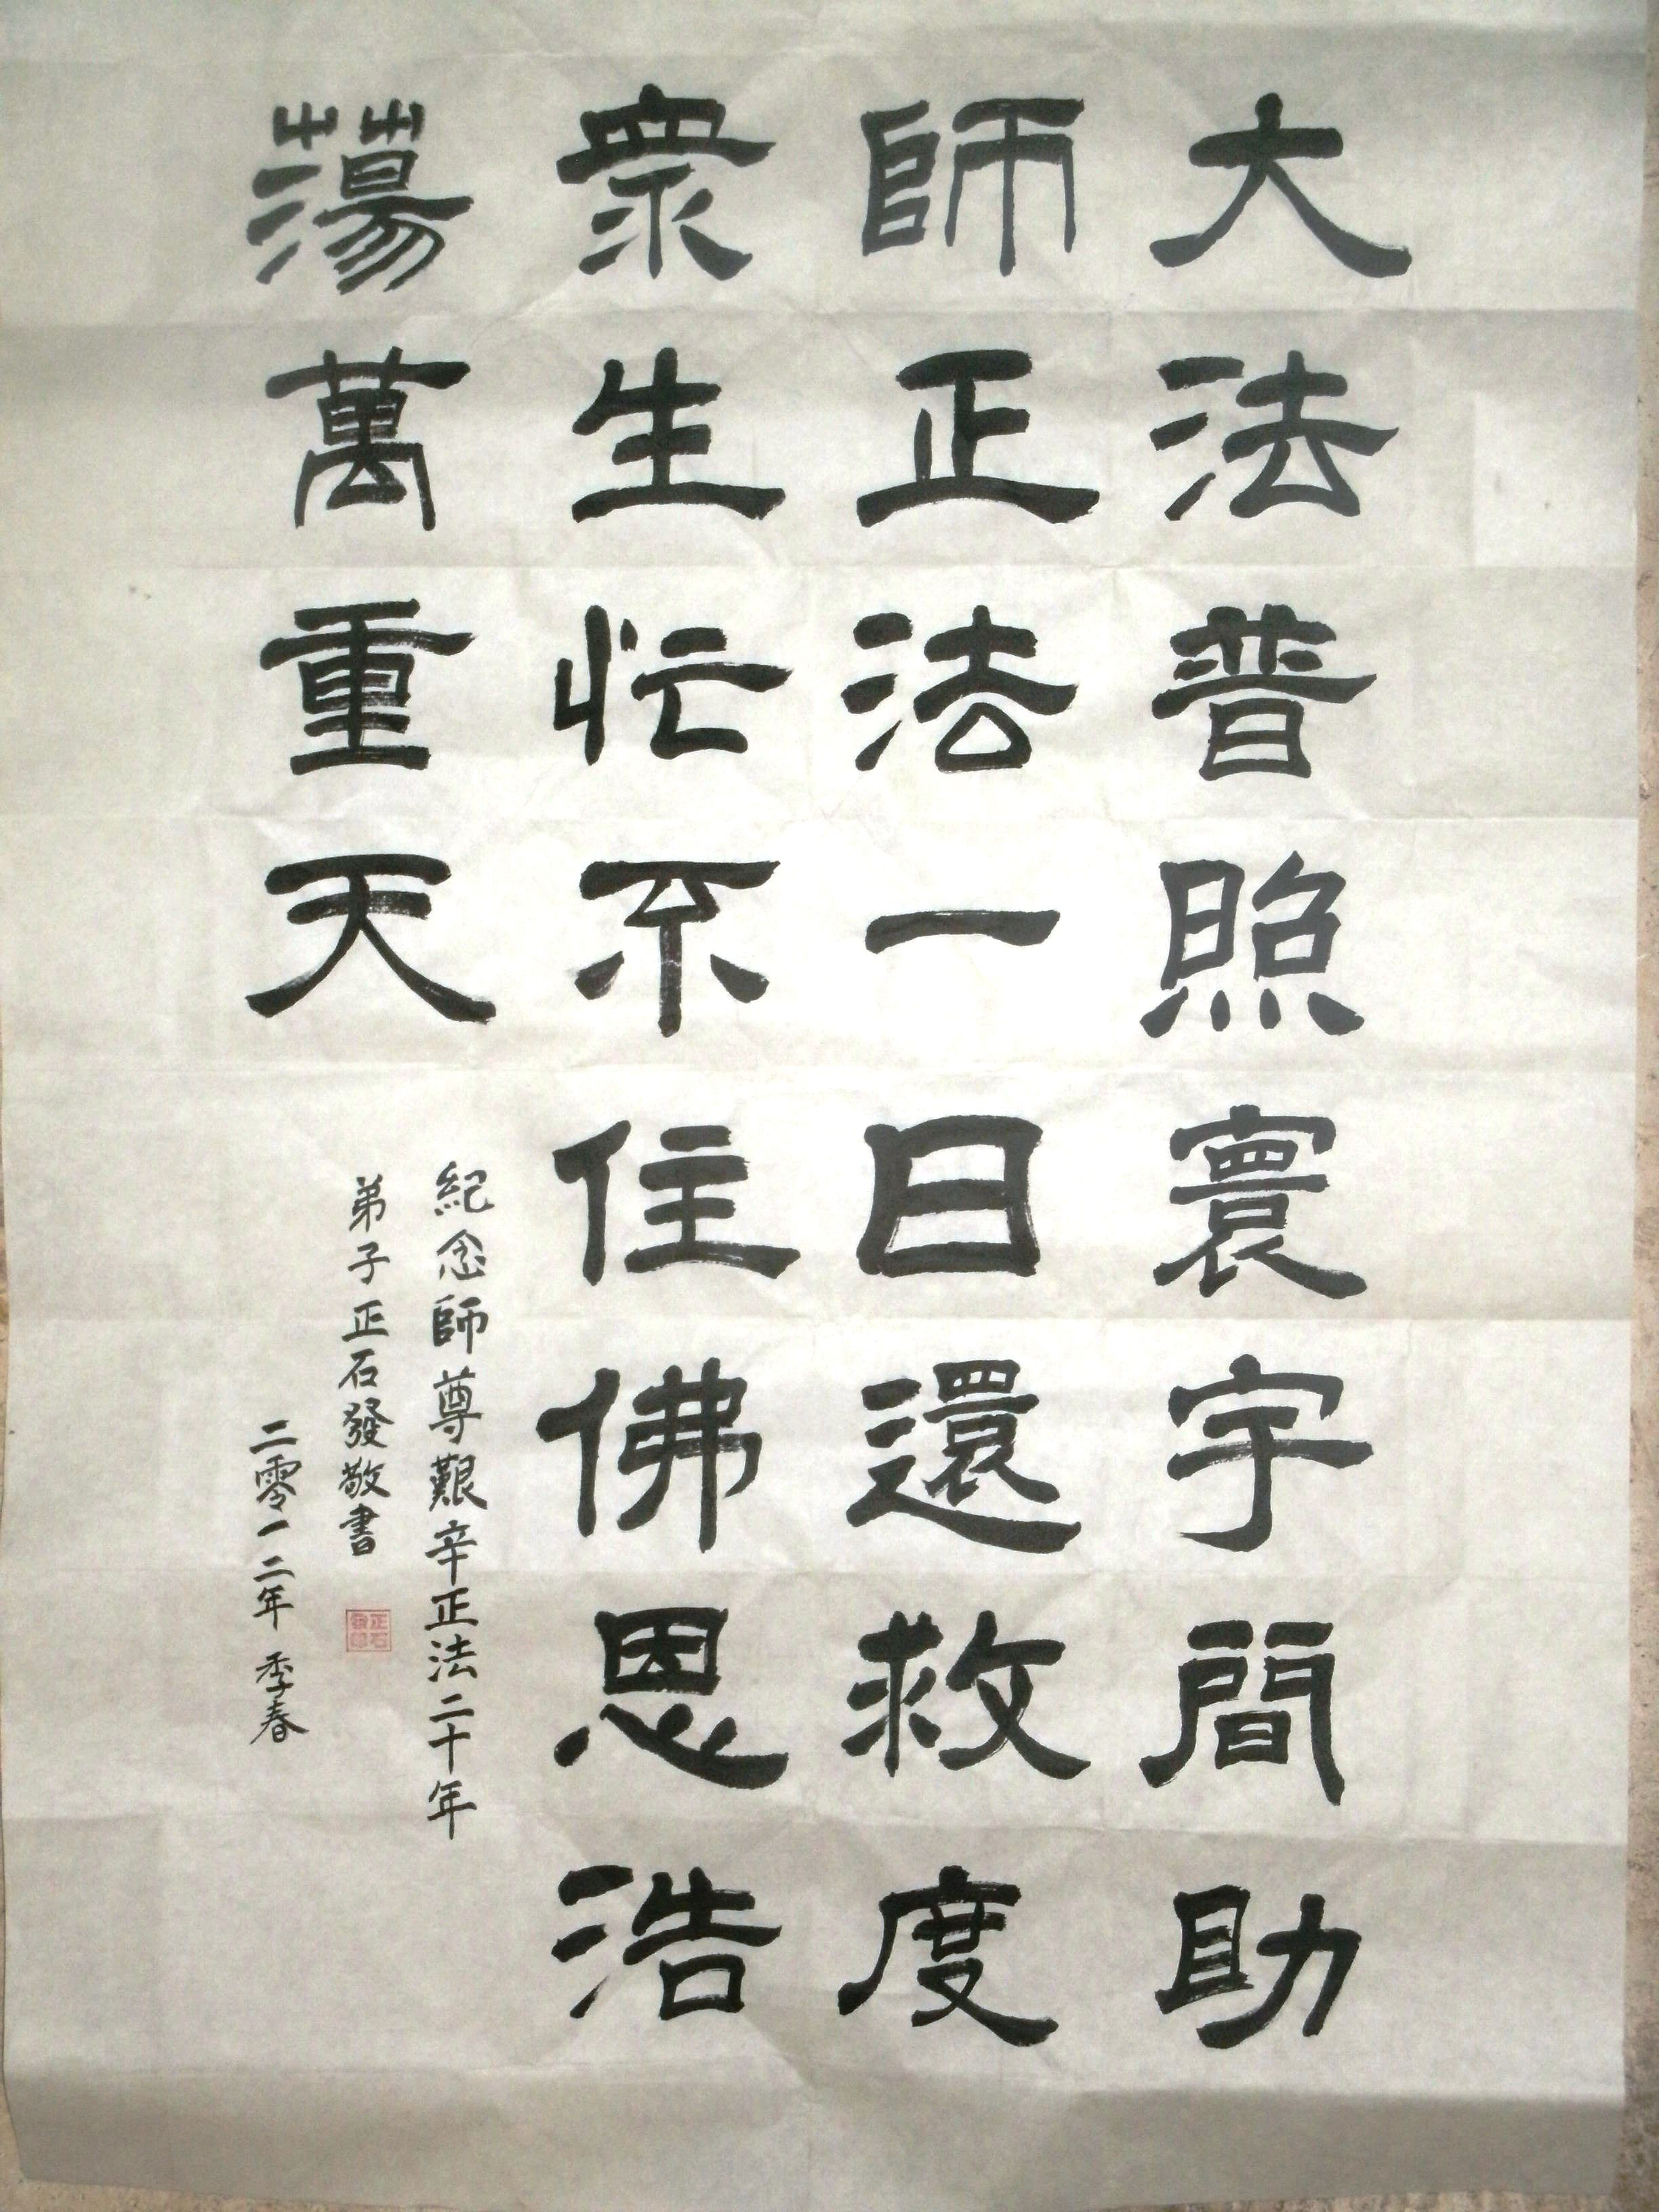 大法普照寰宇間助
師正法一日還救度
衆生忙不住佛恩浩
蕩萬重天
紀念師尊艱辛正法二十年
弟子正石發敬書
二零一二年 季春